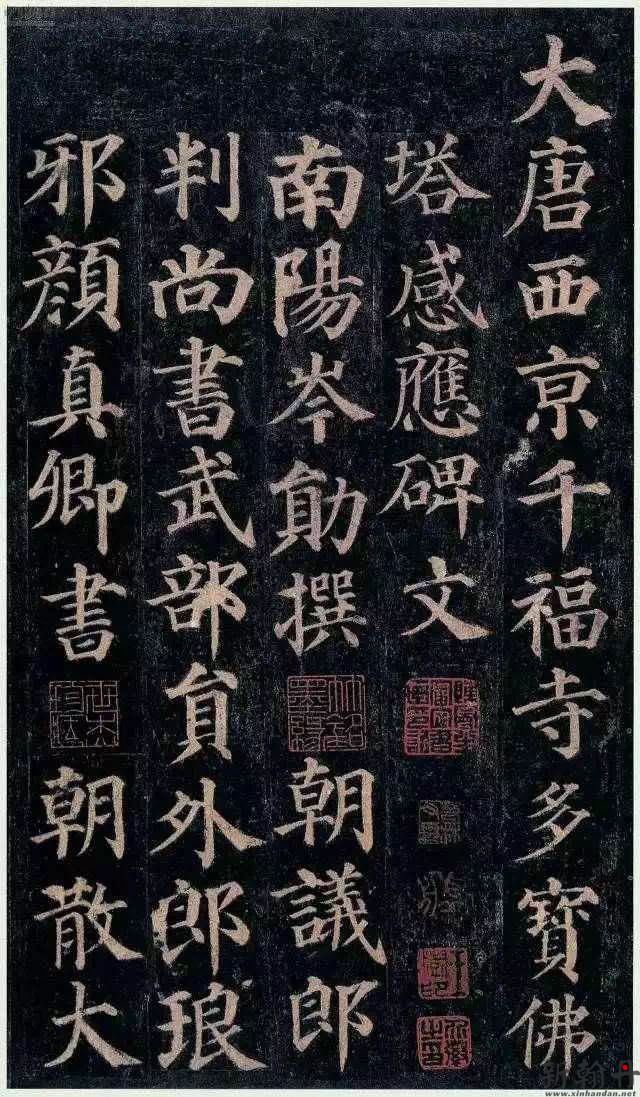 大唐西京千福寺多寶佛
塔感應碑文
南陽岑勛撰朝議郎
判尚書武部員外郎琅
邪顏真卿書朝散大
新翰丹
www.xinhandan.net